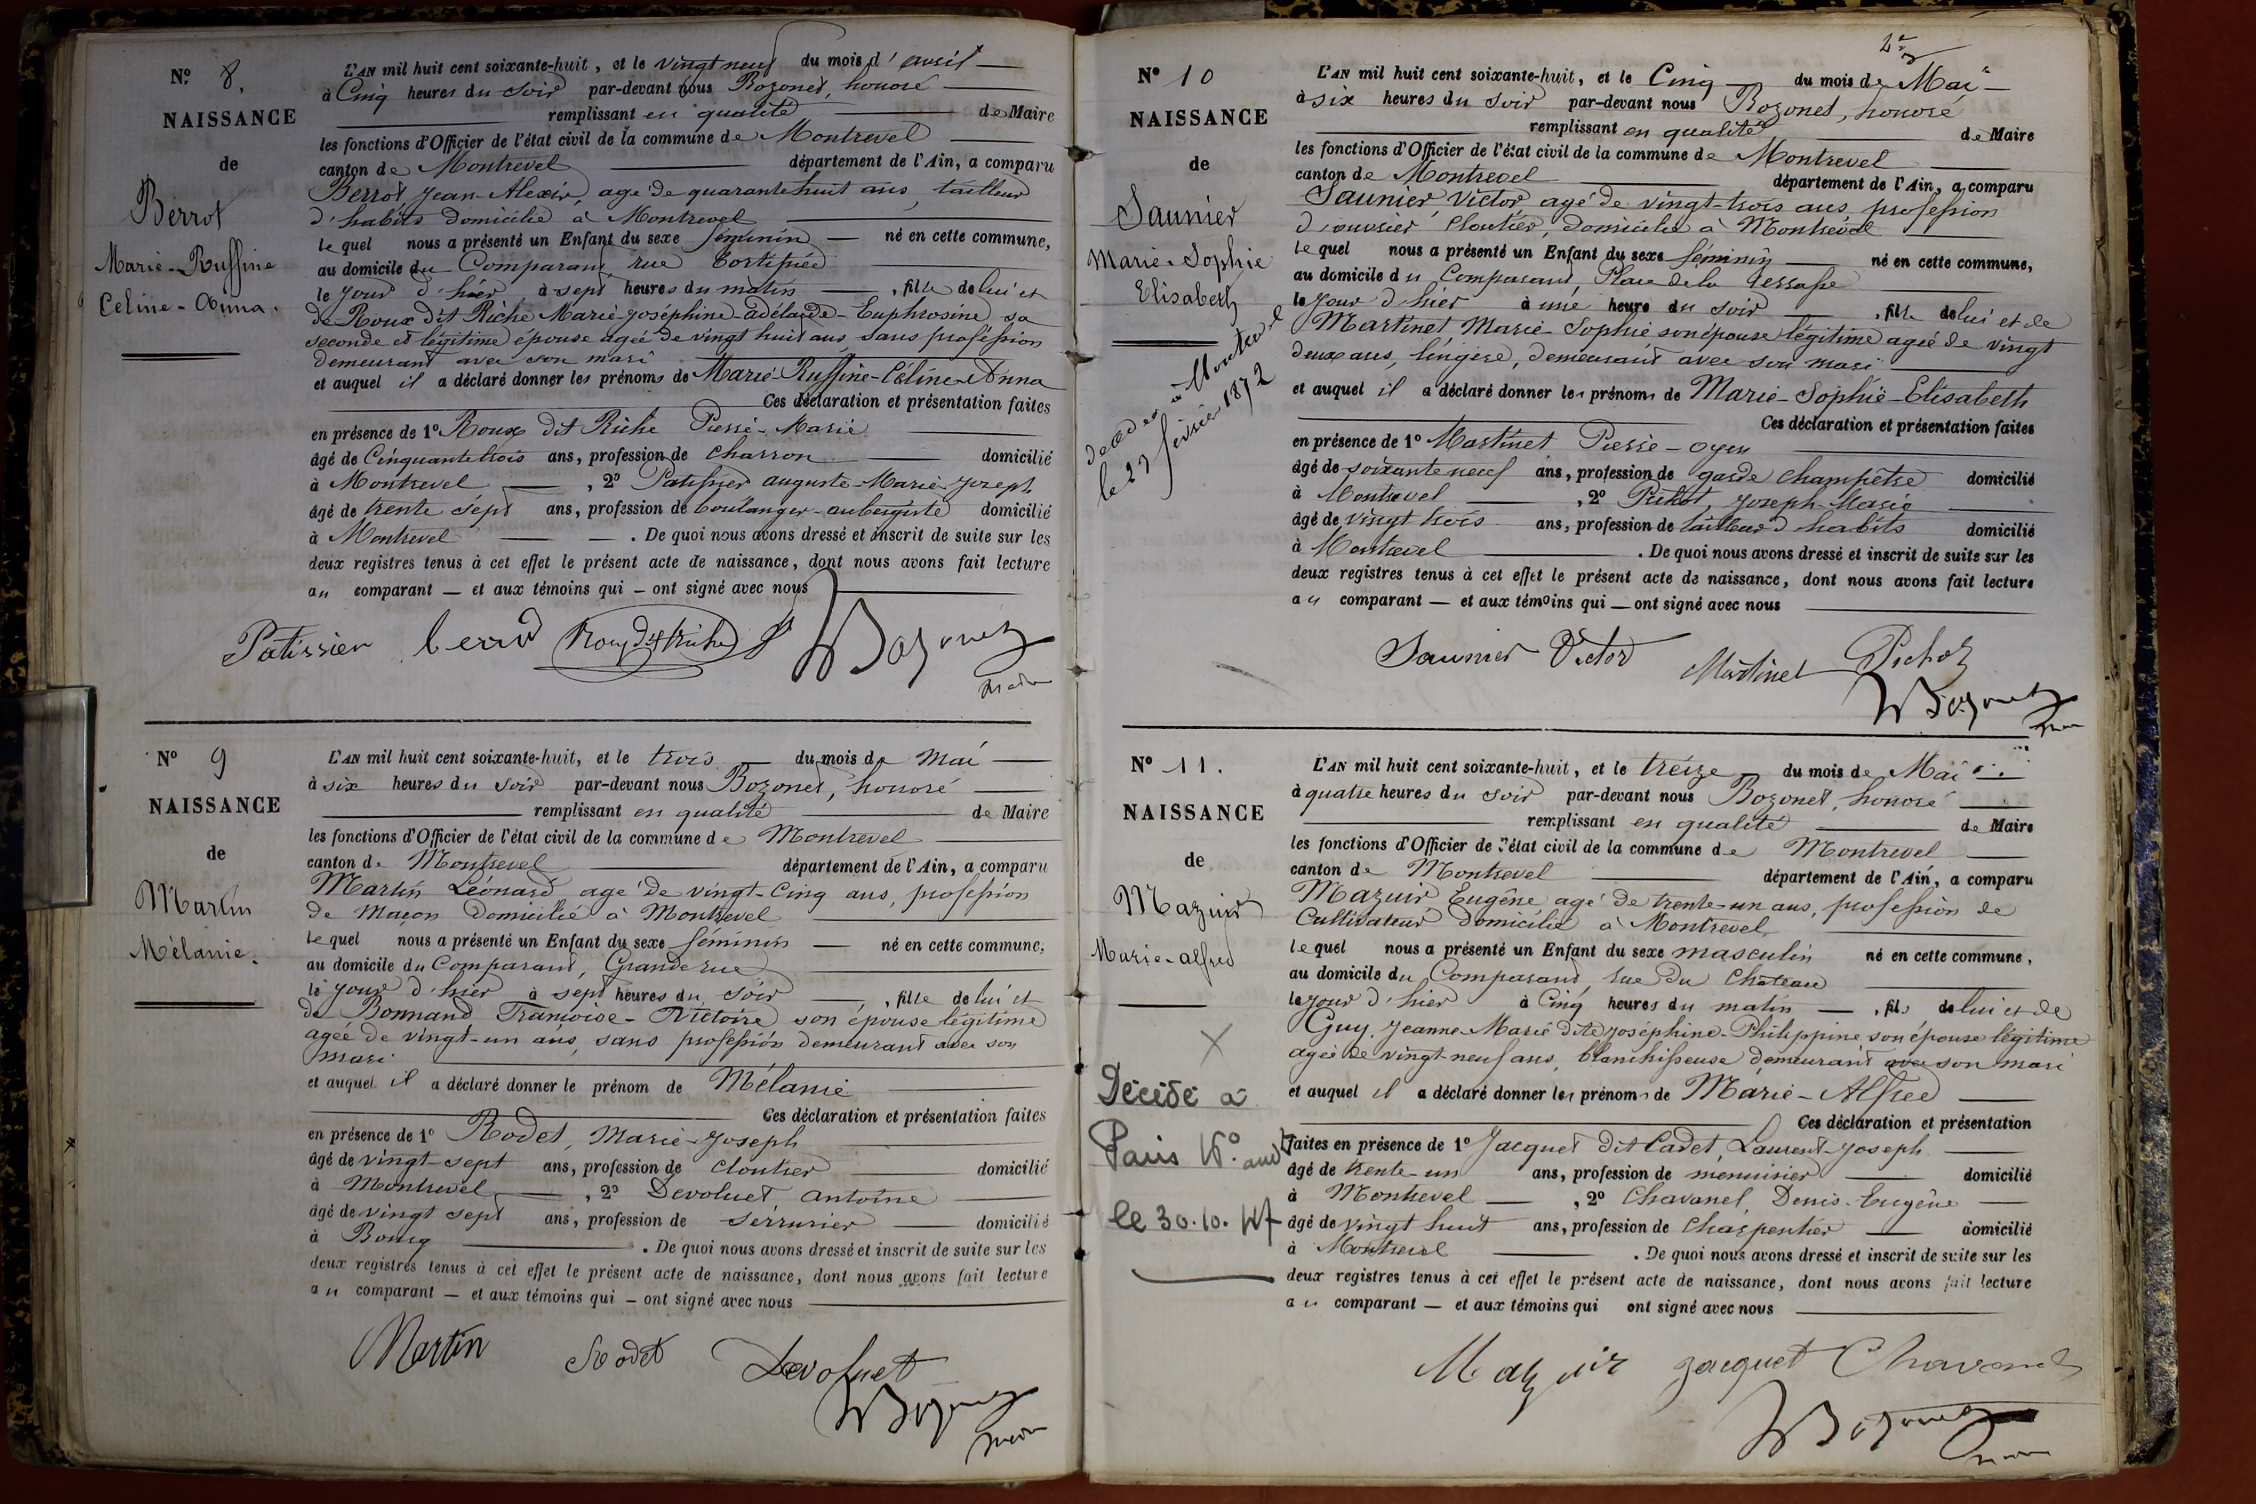 N° 8.
NAISSANCE
de
Berrot
Marie-Ruffine
Céline-Anna.
L'AN mil huit cent soixante-huit, et le vingt neuf du mois d'avril
à Cinq heures du Soir par-devant nous Bozonet, honoré
remplissant en qualité de Maire
les fonctions d'Officier de l'état civil de la commune de Montrevel
canton de Montrevel département de l'Ain, a comparu
Berrot Jean-Alexis, agé de quarante huit ans, tailleur
d'habits domicilié à Montrevel
lequel nous a présenté un Enfant du sexe féminin né en cette commune,
au domicile du Comparant, rue Fortifiée
le jour d'hier à sept heures du matin, fille de lui et
de Roux dit Riche Marie-Joséphine-adélaïde-Euphrosine sa
seconde et légitime épouse agée de vingt huit ans sans profession
demeurant avec son mari
et auquel il a déclaré donner les prénoms de Marie-Ruffine-Céline-Anna
Ces déclaration et présentation faites
en présence de 1° Roux dit Riche Pierre-Marie
âgé de Cinquante trois ans, profession de Charron domicilié
à Montrevel, 2° Patissier auguste-Marie-Joseph
âgé de trente sept ans, profession de boulanger-aubergiste domicilié
à Montrevel. De quoi nous avons dressé et inscrit de suite sur les
deux registres tenus à cet effet le présent acte de naissance, dont nous avons fait lecture
au comparant — et aux témoins qui – ont signé avec nous
Patissier Berrod Roux dit Riche Bozonet
maire
N° 9
NAISSANCE
de
Martin
Mélanie.
L'AN mil huit cent soixante-huit, et le trois du mois de Mai
à six heures du soir par-devant nous Bozonet, honoré
remplissant en qualité de Maire
les fonctions d'Officier de l'état civil de la commune de Montrevel
canton de Montrevel département de l'Ain, a comparu
Martin Léonard agé de vingt-cinq ans, profession
de Maçon domicilié à Montrevel
lequel nous a présenté un Enfant du sexe féminin né en cette commune,
au domicile du Comparant, Grande rue
le jour d'hier à sept heures du soir, fille de lui et
de Bonnand Françoise-Victoire son épouse légitime
agée de vingt-un ans, sans profession demeurant avec son
mari
et auquel il a déclaré donner le prénom de Mélanie
Ces déclaration et présentation faites
en présence de 1° Rodet, Marie-Joseph
âgé de vingt-sept ans, profession de cloutier domicilié
à Montrevel, 2° Devoluet antoine
âgé de vingt sept ans, profession de serrurier domicilié
à Bourg. De quoi nous avons dressé et inscrit de suite sur les
deux registres tenus à cet effet le présent acte de naissance, dont nous avons fait lecture
au comparant — et aux témoins qui – ont signé avec nous
Martin Rodet Devoluet
Bozonet
maire
N° 10
NAISSANCE
de
Saunier
Marie-Sophie
Elisabeth
décédée à Montrevel
le 23 février 1872
L'AN mil huit cent soixante-huit, et le Cinq du mois de Mai
à six heures du soir par-devant nous Bozonet, honoré
remplissant en qualité de Maire
les fonctions d'Officier de l'état civil de la commune de Montrevel
canton de Montrevel département de l'Ain, a comparu
Saunier Victor agé de vingt-trois ans profession
d'ouvrier Cloutier, domicilié à Montrevel
lequel nous a présenté un Enfant du sexe féminin né en cette commune,
au domicile du Comparant, Place de la
le jour d'hier à une heure du soir, fille de lui et de
Martinet Marie-Sophie son épouse légitime agée de vingt
deux ans, lingère, demeurant avec son mari
et auquel il a déclaré donner les prénoms de Marie-Sophie-Elisabeth
Ces déclaration et présentation faites
en présence de 1° Martinet Pierre-oyen
âgé de soixante neuf ans, profession de garde champêtre domicilié
à Montrevel, 2° Pichot, Joseph-Marie
âgé de vingt trois ans, profession de tailleur d'habits domicilié
à Montrevel. De quoi nous avons dressé et inscrit de suite sur les
deux registres tenus à cet effet le présent acte de naissance, dont nous avons fait lecture
au comparant — et aux témoins qui — ont signé avec nous
Saunier Victor Martinet Pichot
Bozonet
maire
N° 11.
NAISSANCE
de
Mazuir
Marie-alfred
Décédé à
Paris 16° arrdt
le 30.10.47
L'AN mil huit cent soixante-huit, et le treize du mois de Mai
à quatre heures du soir par-devant nous Bozonet, honoré
remplissant en qualité de Maire
les fonctions d'Officier de l'état civil de la commune de Montrevel
canton de Montrevel département de l'Ain, a comparu
Mazuir Eugêne agé de trente-un ans, profession de
Cultivateur domicilié à Montrevel
lequel nous a présenté un Enfant du sexe masculin né en cette commune,
au domicile du Comparant rue du Château
le jour d'hier à Cinq heures du matin — , fils de lui et de
Guy, Jeanne-Marie dite Joséphine-Philippine son épouse légitime
agée de vingt neuf ans, blanchisseuse demeurant avec son mari
et auquel il a déclaré donner les prénoms de Marie-Alfred
Ces déclaration et présentation
faites en présence de 1° Jacquet dit Cadet, Laurent-Joseph
âgé de trente-un ans, profession de menuisier domicilié
à Montrevel — , 2° Chavanel, Denis-Eugêne
âgé de vingt huit ans, profession de Charpentier domicilié
à Montrevel. De quoi nous avons dressé et inscrit de suite sur les
deux registres tenus à cet effet le présent acte de naissance, dont nous avons fait lecture
au comparant — et aux témoins qui ont signé avec nous
Mazuir Jacquet Chavanel
Bozonet
maire